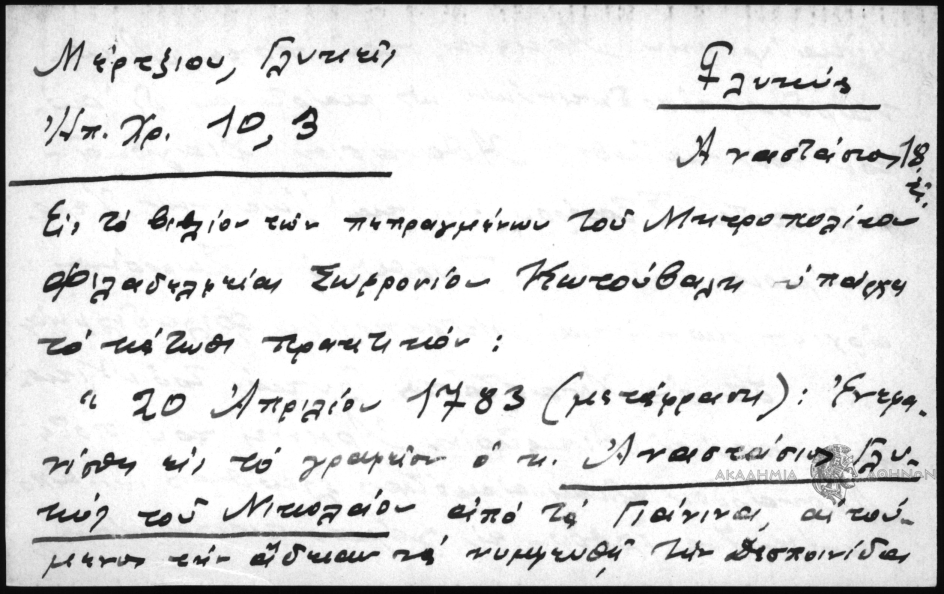 Μέρτζιου, Γλυκεῖς
Ἠπ. Χρ. 10, 3
Γλυκύς
Ἀναστάσιος 18.
Εἰς τὸ βιβλίον τῶν πεπραγμένων τοῦ Μητροπολίτου
Φιλαδελφείας Σωφρονίου Κουτούβαλη ὑπάρχει
τὸ κάτωθι πρακτικόν :
" 20 Ἀπριλίου 1783 (μετάφρασις) : Ἐνεφα-
νίσθη εἰς τὸ γραφεῖον ὁ κ. Ἀναστάσιος Γλυ-
κύς τοῦ Νικολάου ἀπό τὰ Γιάνινα, αἰτού-
μενος τὴν ἄδειαν νὰ νυμφευθῇ τὴν δεσποινίδα
ΑΚΑΔΗΜΙΑ ΑΘΗΝΩΝ